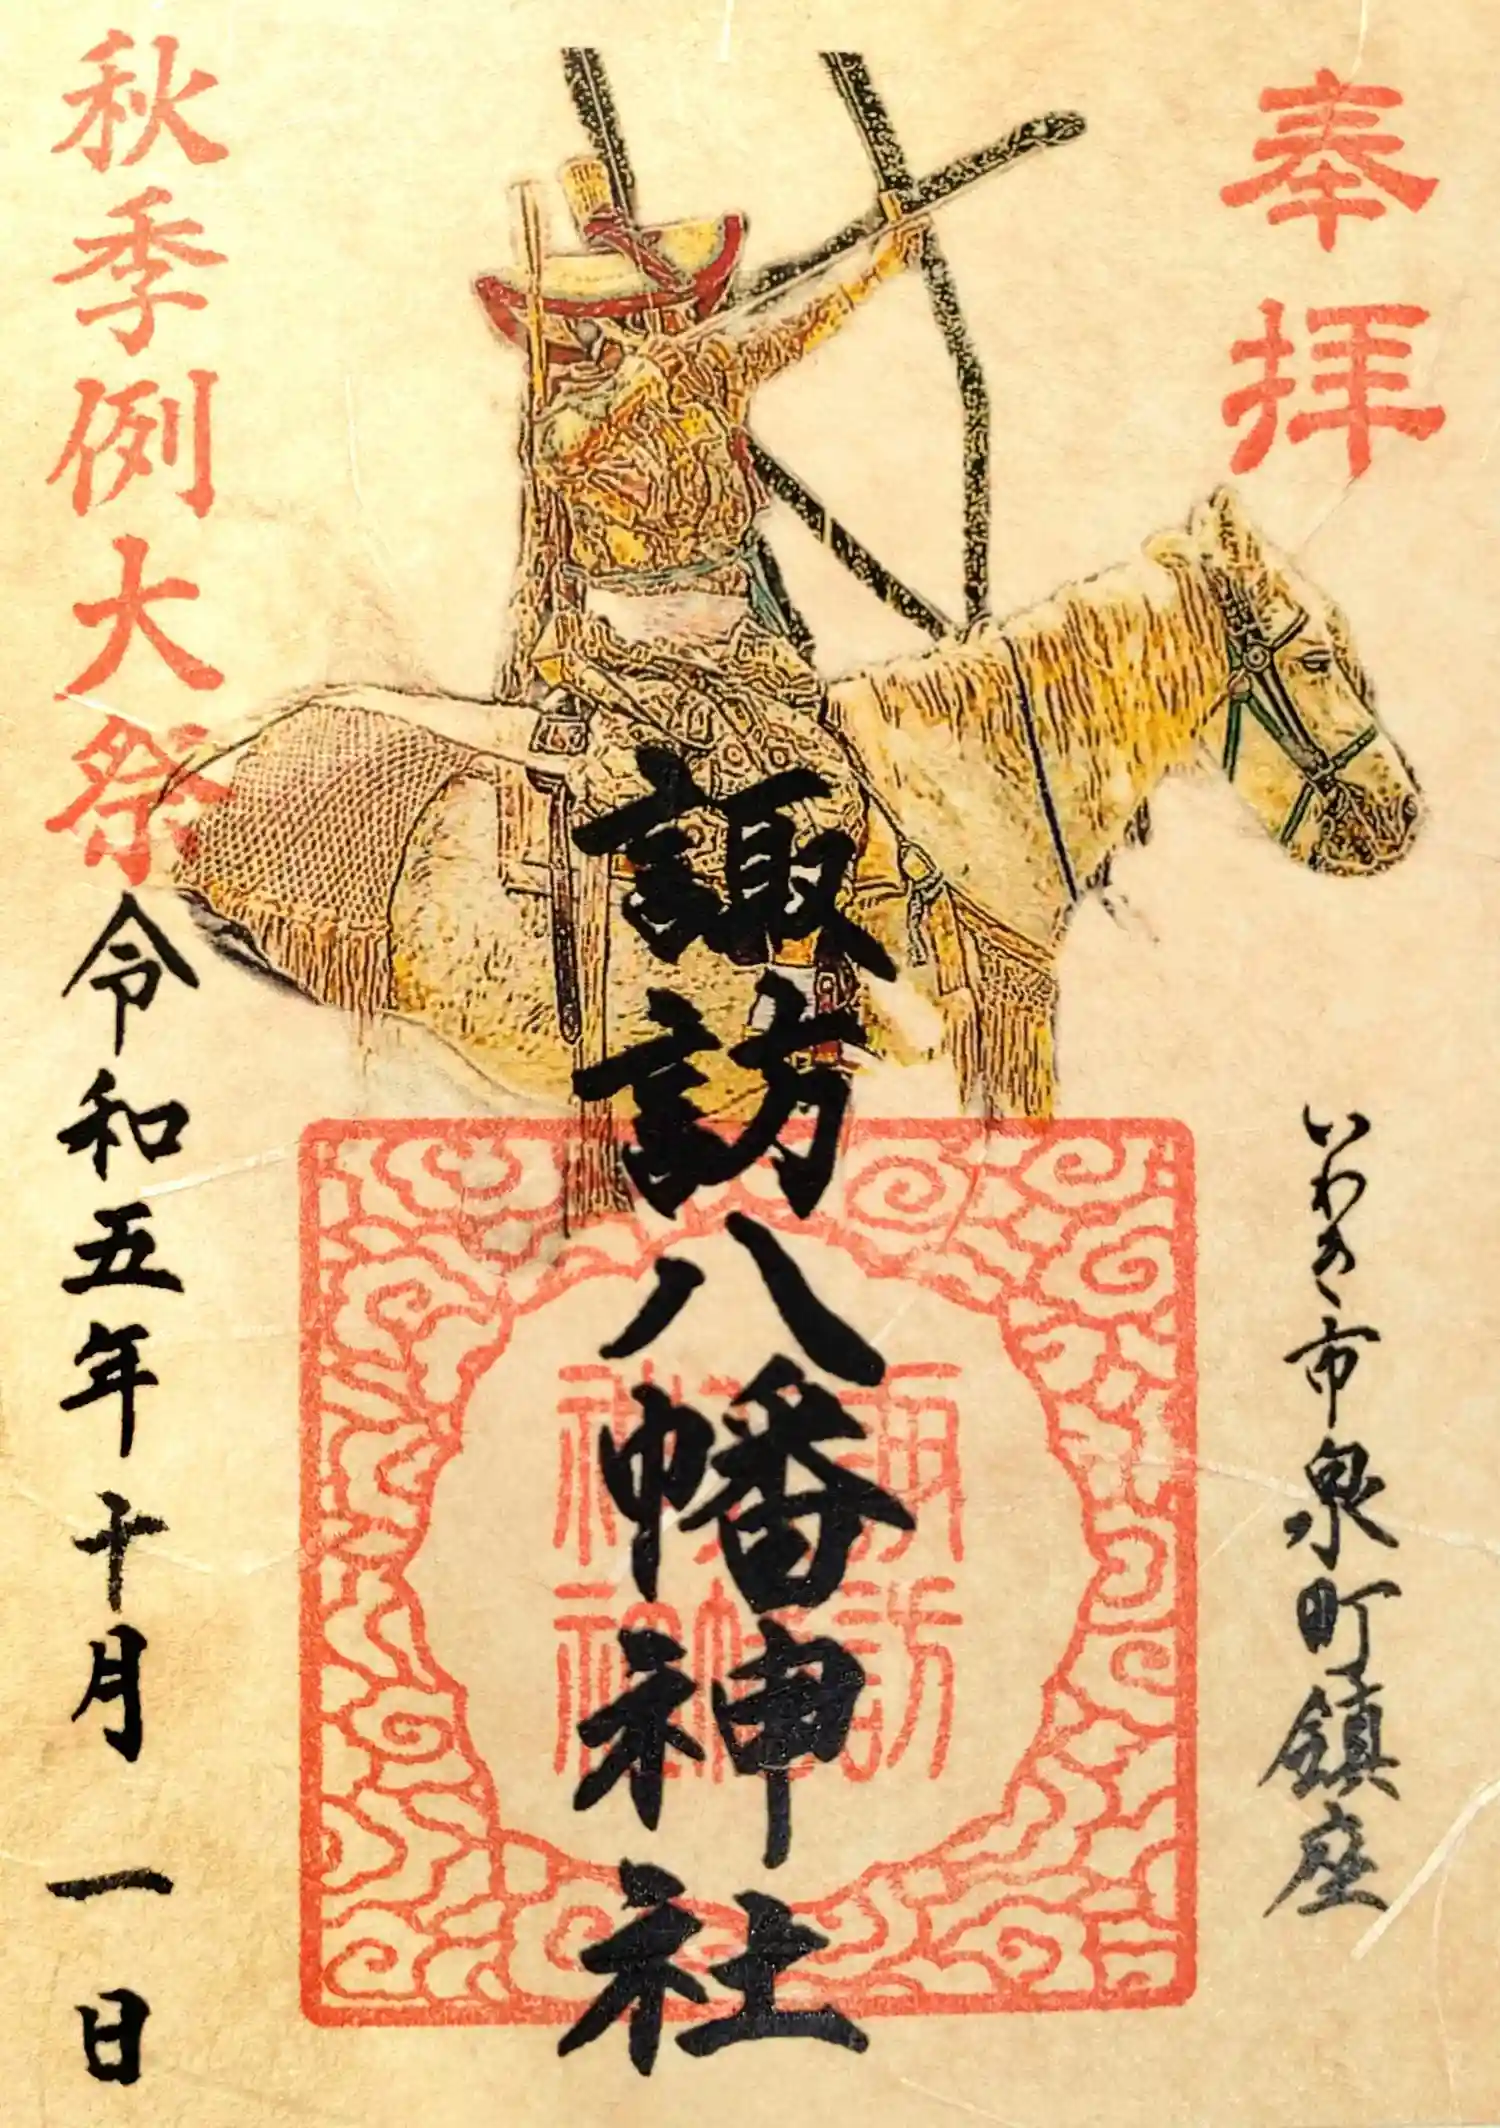 奉拝
いわき市泉町鎮座
諏訪八幡神社
諏訪
八幡
神社
秋季例大祭
令和五年十月一日